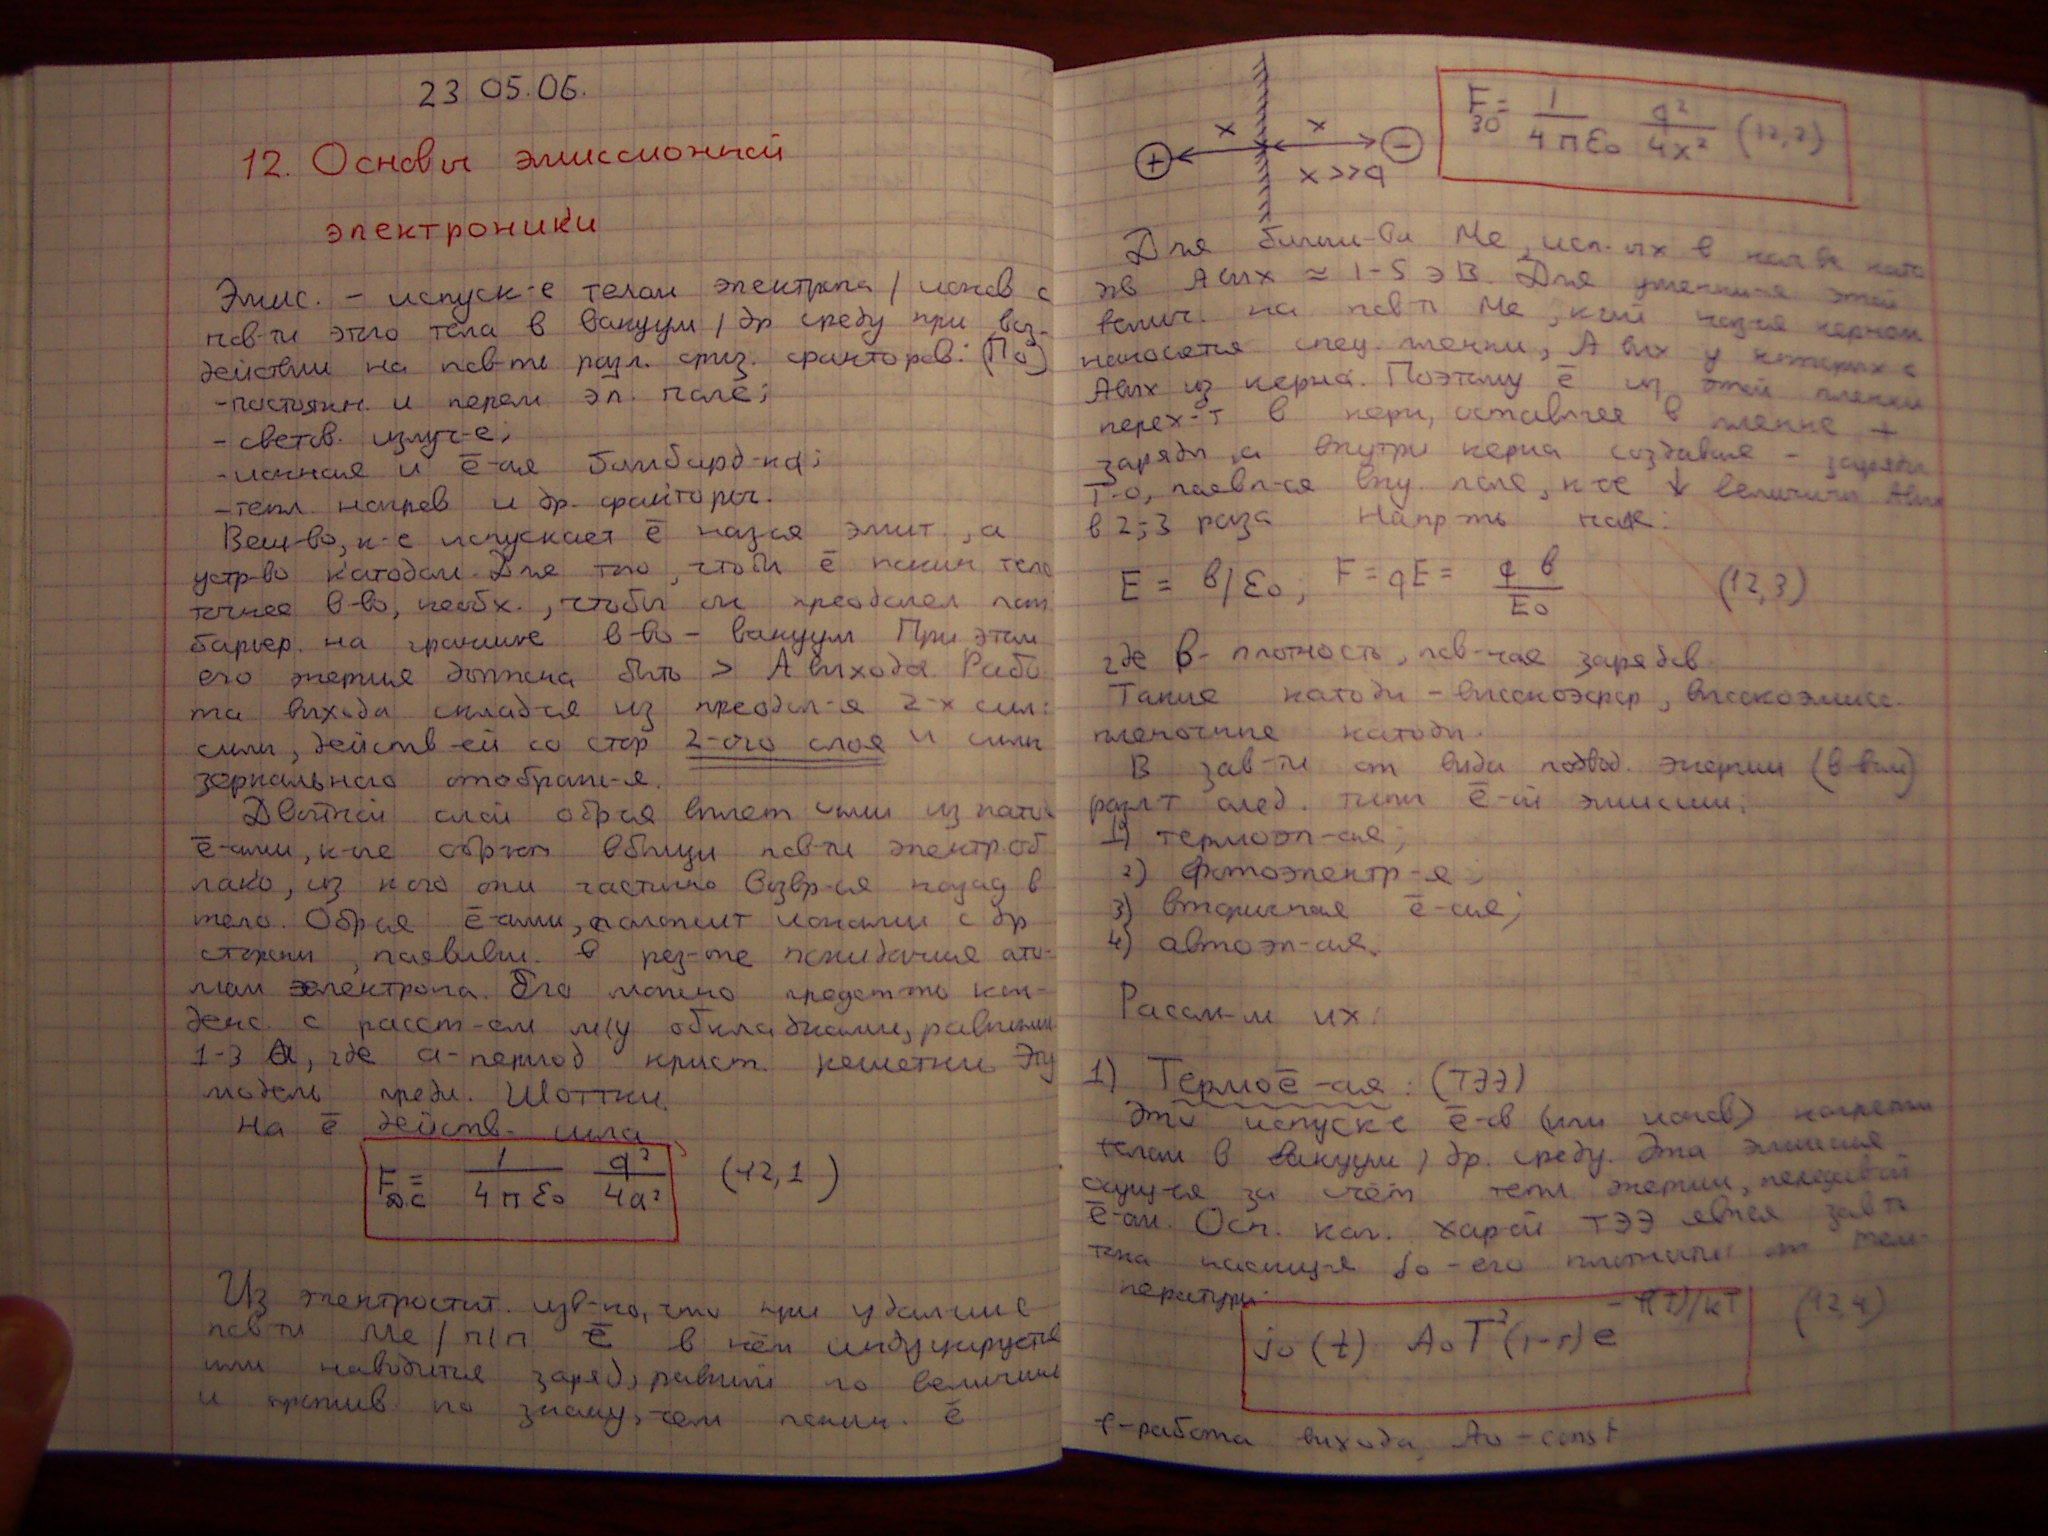 23 05.06.
12. Основы эмиссионной
электроники
Эмис. – испуск-е телом электрона / ионов с
пов-ти этого тела в вакуум / др среду при воз-
действии на пов-ть разл. физ. факторов:
- постоянн. и перем эл. поле;
- светов. излуч-е;
- ионная и ē-ая бомбард-ка;
- тепл. нагрев и др. факторы.
Вещ-во, к-е испускает ē наз-ся эмит., а
устр-во катодом. Для того, чтобы ē покин тело
точнее в-во, необх., чтобы он преодолел пот
барьер. на границе в-во – вакуум При этом
его энергия должна быть > A выхода Рабо
та выхода складся из преодол-я 2-х сил:
силы, действ-ей со стор 2-ого слоя и силы
зеркального отображ-я.
Двойной слой обр-ся
ē-ами, к-ые обр-ют вблизи пов-ти электр об
лако, из к-ого они частично возвр-ся назад в
тело. Обр-ся ē-ами, положит ионами с др
стороны, появивш. в рез-те покидания ато-
мом электрона. Его можно предст-ть кон-
денс. с расст-ем м/у обкладками, равными
1-3 a, где a - период крист. решетки. Эту
модель предл. Шоттки.
На ē действ. сила
F дс = 1/4πε0 q²/4a² (12,1)
Из электростат. изв-но, что при удалении с
пов-ти Me / п/п ē в нём индуцируется
или наводится заряд, равный по величине
и против. по знаку, чем покин. ē
+ x x −
x >> a
F зо = 1/4πε0 q²/4x² (12,2)
Для больш-ва Me, исп-ых в кач-ве като
дов Aвых ≈ 1-5 эВ. Для уменьш-я этой
велич. на пов-ть Me, к-ый наз-ся керном
наносятся спец. пленки, Aвых у которых <
Aвых из керна. Поэтому ē из этой пленки
перех-т в керн, оставляя в пленке +
заряды, а внутри керна создавая – заряды
Т.о, появл-ся вну. поле, к-ое ↓ величину Aвых
в 2;3 раза Напр-ть поля:
E = б/ε0; F = qE = qб/ε0 (12,3)
где б - плотность, пов-ная зарядов.
Такие катоды – высокоэфф, высокоэмисс.
пленочные катоды.
В зав-ти от вида подвод. энергии
разл-т след. типы ē-ой эмиссии:
1) термоэл-ая;
2) фотоэлектр-я;
3) вторичная ē-ая;
4) автоэл-ая.
Рассм-м их:
1) Термоē-ая: (ТЭЭ)
Это испуск-е ē-ов (или ионов) нагретым
телом в вакуум / др. среду. Эта эмиссия
осущ-ся за счёт тепл энергии,
ē-ам. Осн. хар-ой ТЭЭ явл-ся зав-ть
тока насыщ-я j0 - его плотности от тем-
пературы:
j0 (t) A0T²(1-r)e^-f(T)/kT (12,4)
f - работа выхода, A0 - const